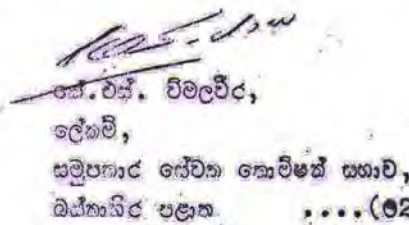 කේ.එස්. විමලවීර,
ලේකම්,
සමුපකාර සේවක කොමිෂන් සභාව,
බස්නාහිර පළාත ....(02